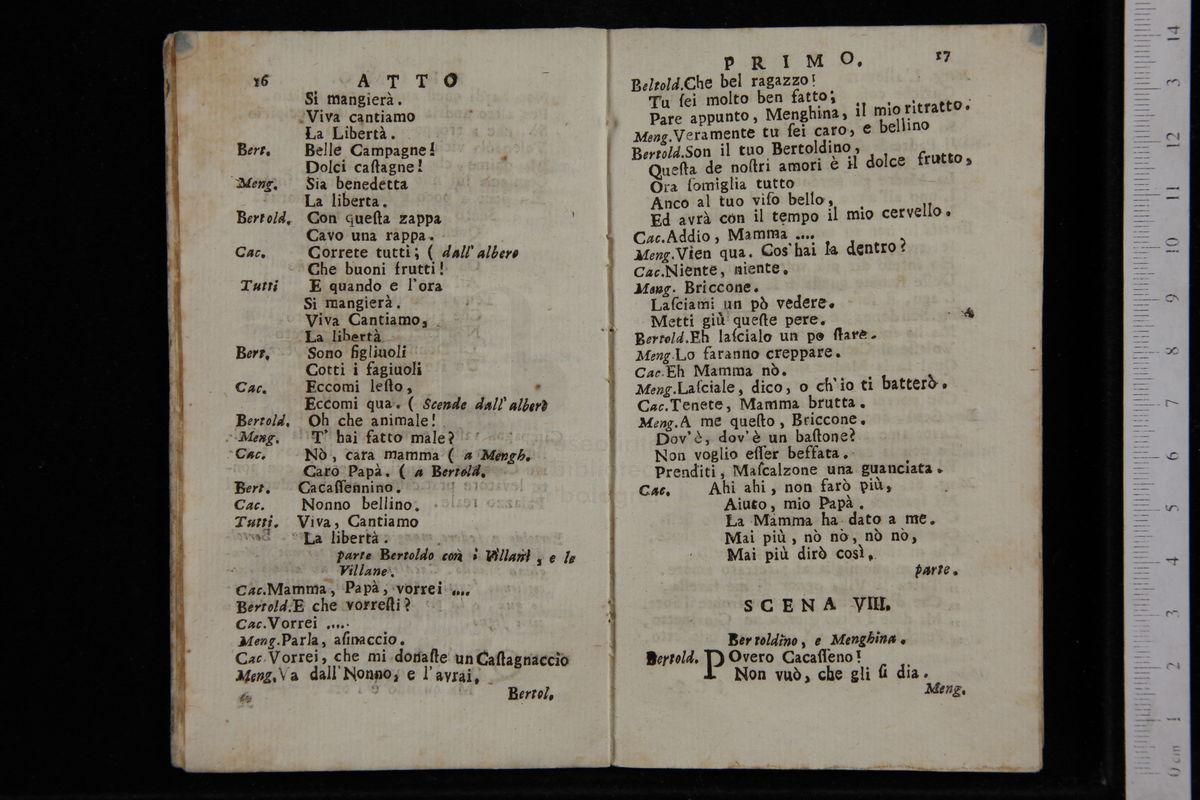 16 ATTO
Si mangierà.
Viva cantiamo
La Libertà.
Bert. Belle Campagne!
Dolci caſtagne!
Meng. Sia benedetta
La liberta.
Bertold. Con queſta zappa
Cavo una rappa.
Cac. Correte tutti; ( dall' albero
Che buoni frutti!
Tutti E quando e l'ora
Si mangierà.
Viva Cantiamo,
La libertà
Bert. Sono figliuoli
Cotti i fagiuoli
Cac. Eccomi leſto,
Eccomi qua. ( Scende dall' albero
Bertold. Oh che animale!
Meng. T' hai fatto male?
Cac. Nò, cara mamma ( a Mengh.
Caro Papà. ( a Bertold.
Bert. Cacaſſennino.
Cac. Nonno bellino.
Tutti. Viva, Cantiamo
La libertà.
parte Bertoldo con i Villani, e le
Villane.
Cac. Mamma, Papà, vorrei ....
Bertold. E che vorreſti?
Cac. Vorrei .....
Meng. Parla, aſinaccio.
Cac. Vorrei, che mi donaſte un Caſtagnaccio
Meng. Va dall' Nonno, e l'avrai.
Bertol.
PRIMO. 17
Beltold. Che bel ragazzo!
Tu ſei molto ben fatto;
Pare appunto, Menghina, il mio ritratto.
Meng. Veramente tu ſei caro, e bellino
Bertold. Son il tuo Bertoldino,
Queſta de noſtri amori è il dolce frutto,
Ora ſomiglia tutto
Anco al tuo viſo bello,
Ed avrà con il tempo il mio cervello.
Cac. Addio, Mamma ....
Meng. Vien qua. Cos' hai la dentro?
Cac. Niente, niente.
Meng. Briccone.
Laſciami un pò vedere.
Metti giù queſte pere.
Bertold. Eh laſcialo un po ſtare.
Meng. Lo faranno creppare.
Cac. Eh Mamma nò.
Meng. Laſciale, dico, o ch' io ti batterò.
Cac. Tenete, Mamma brutta.
Meng. A me queſto, Briccone.
Dov'è, dov'è un baſtone?
Non voglio eſſer beffata.
Prenditi, Maſcalzone una guanciata.
Cac. Ahi ahi, non farò più,
Aiuto, mio Papà.
La Mamma ha dato a me.
Mai più, nò nò, nò nò,
Mai più dirò così.
parte.
SCENA VIII.
Bertoldino, e Menghina.
Bertold. POvero Cacaſſeno!
Non vuò, che gli ſi dia.
Meng.